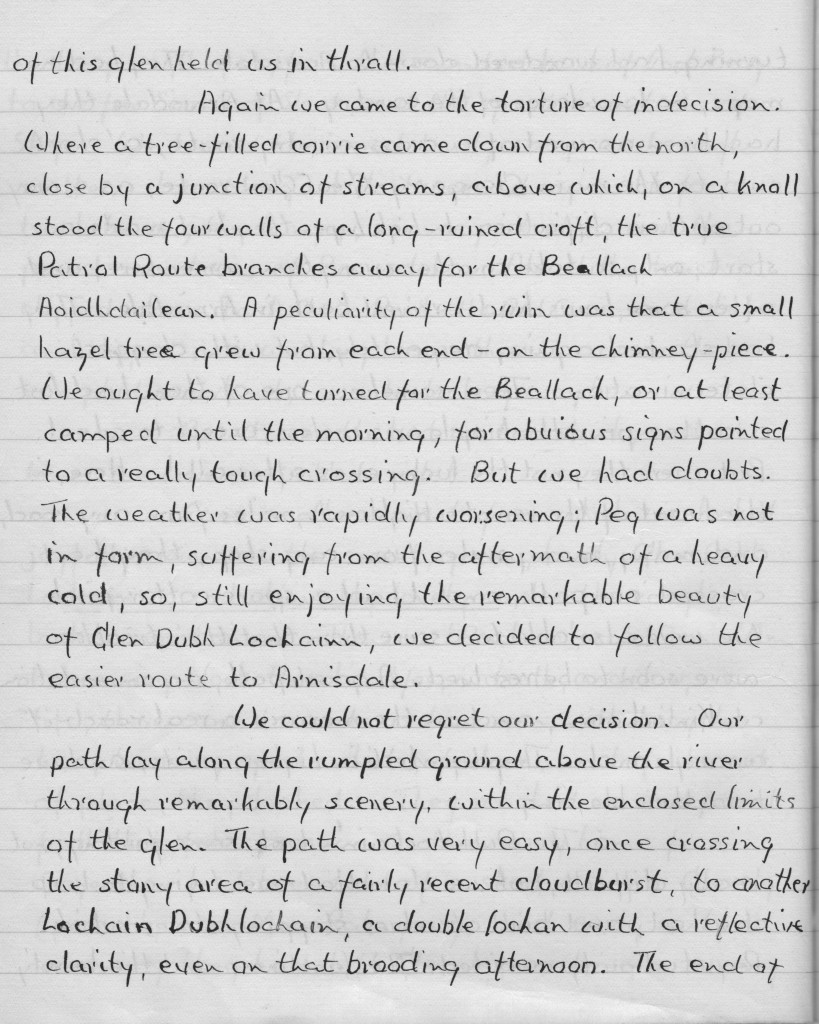 of this glen held us in thrall.
Again we came to the torture of indecision.
Where a tree-filled corrie came down from the north,
close by a junction of streams, above which, on a knoll
stood the four walls of a long-ruined croft, the true
Patrol Route branches away for the Beallach
Aoidhdailean. A peculiarity of the ruin was that a small
hazel tree grew from each end - on the chimney-piece.
We ought to have turned for the Beallach, or at least
camped until the morning, for obvious signs pointed
to a really tough crossing. But we had doubts.
The weather was rapidly worsening; Peg was not
in form, suffering from the aftermath of a heavy
cold, so, still enjoying the remarkable beauty
of Glen Dubh Lochainn, we decided to follow the
easier route to Arnisdale.
We could not regret our decision. Our
path lay along the rumpled ground above the river
through remarkably scenery, within the enclosed limits
of the glen. The path was very easy, once crossing
the stony area of a fairly recent cloudburst, to another
Lochain Dubhlochain, a double lochan with a reflective
clarity, even on that brooding afternoon. The end of